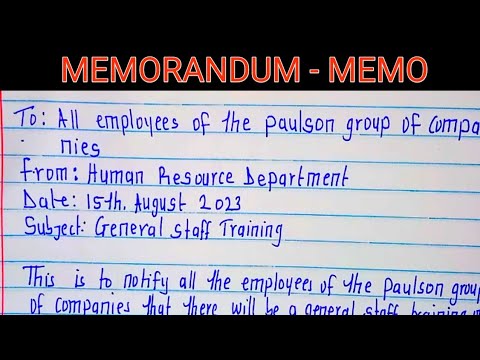 MEMORANDUM - MEMO
To: All employees of the paulson group of compa
nies
From: Human Resource Department
Date: 15th. August 2023
Subject: General staff Training
This is to notify all the employees of the paulson group
of companies that there will be a general staff training